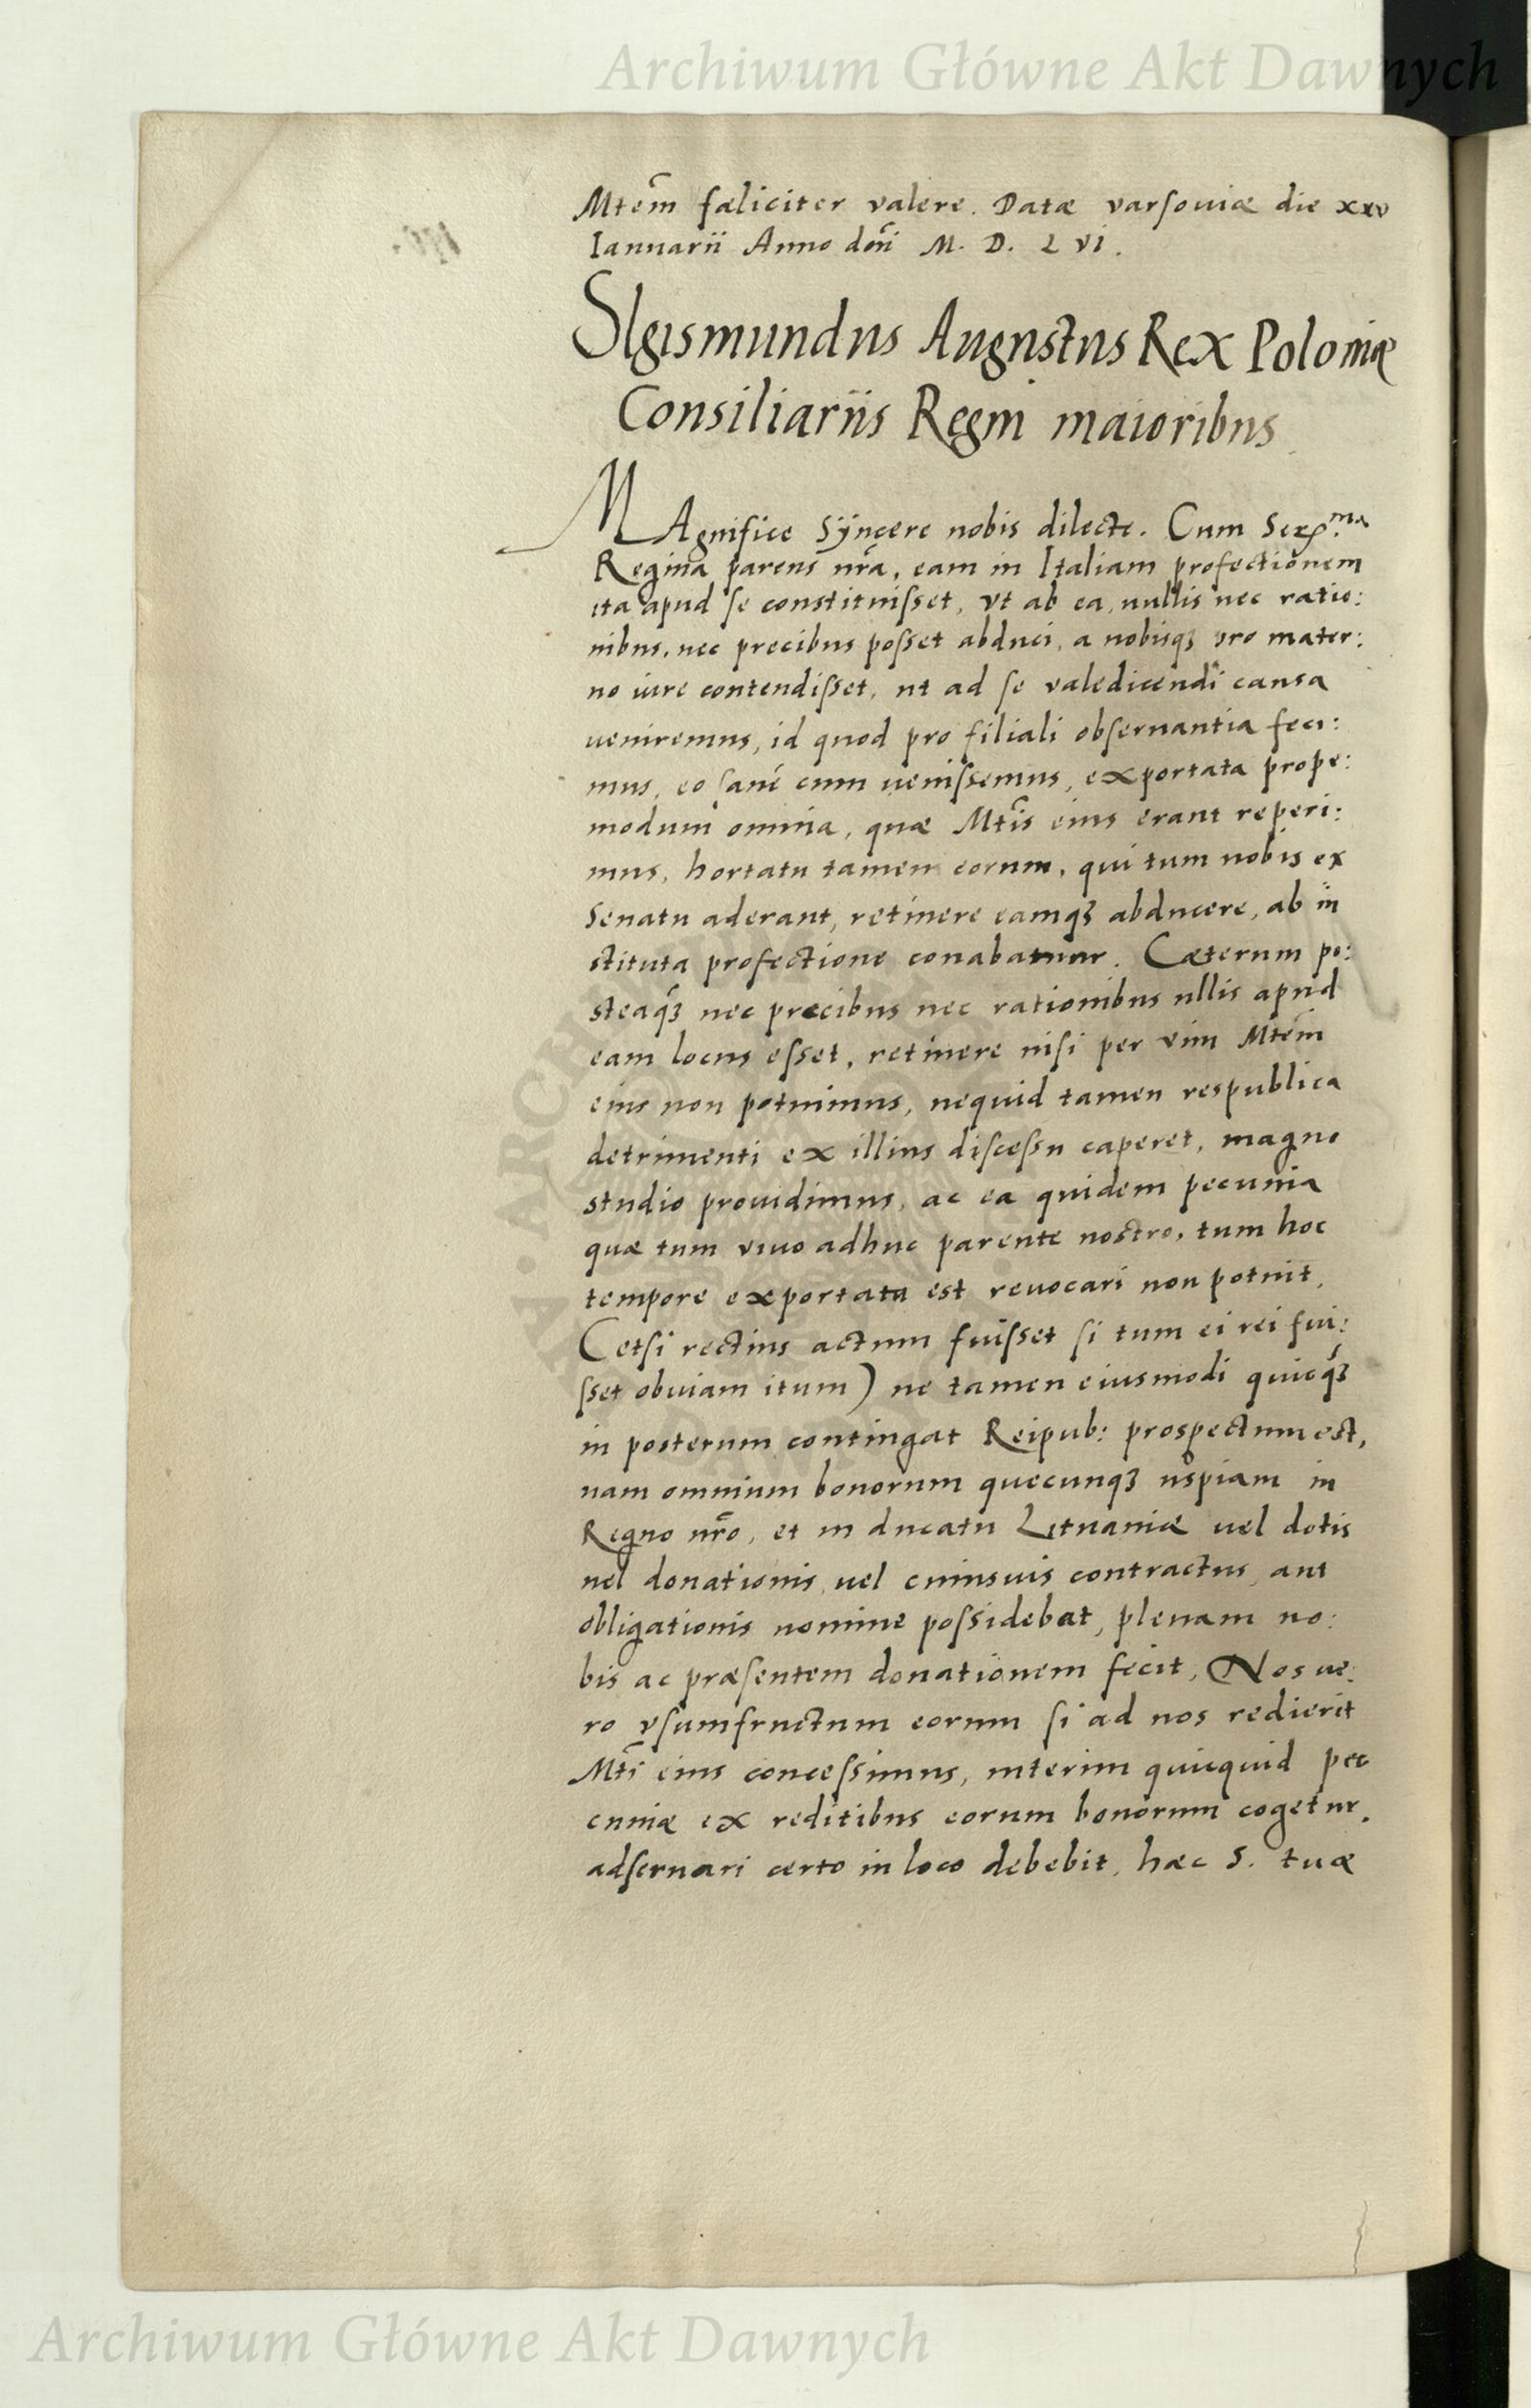 Archiwum Główne Akt Dawnych
Mtem̃ fæliciter valere. Datæ varsouiæ die xxv
Ianuarii Anno doñi M. D. L vi.
SIgismundus Augustus Rex Poloniæ
Consiliariis Regni maioribus
MAgnifice Sÿncere nobis dilecte. Cum Ser.ma
Regina parens nr̃a, eam in Italiam profectionem
ita apud se constituisset, vt ab ea, nullis nec ratio:
nibus, nec precibus posset abduci, a nobisqꝫ pro mater:
no iure contendisset, ut ad se valedicendi causa
ueniremus, id quod pro filiali obseruantia feci:
mus, eo sané cum uenissemus, exportata prope:
modum omnia, quæ Mtis̃ eius erant reperi:
mus, hortatu tamen eorum, qui tum nobis ex
Senatu aderant, retinere eamqꝫ abducere, ab in
stituta profectione conabamur. Cæterum po:
steaq̃ꝫ nec precibus nec rationibus ullis apud
eam locus esset, retinere nisi per vim Mtem̃
eius non potuimus, nequid tamen respublica
detrimenti ex illius discessu caperet, magno
studio prouidimus, ac ea quidem pecunia
quæ tum viuo adhuc parente nostro, tum hoc
tempore exportata est reuocari non potuit,
(etsi rectius actum fuisset si tum ei rei fui:
sset obuiam itum) ne tamen eiusmodi quicq̃ꝫ
in posterum contingat Reipub: prospectum est,
nam omnium bonorum quecunqꝫ uspiam in
Regno nr̃o, et in ducatu Lituaniæ uel dotis
uel donationis, uel cuiusuis contractus, aut
obligationis nomine possidebat, plenam no:
bis ac præsentem donationem fecit, Nos ue:
ro vsumfructum eorum si ad nos redierit
Mti̇̃ eius concessimus, interim quicquid pec
cuniæ ex reditibus eorum bonorum cogetur,
adseruari certo in loco debebit, hæc S. tuæ
Archiwum Główne Akt Dawnych